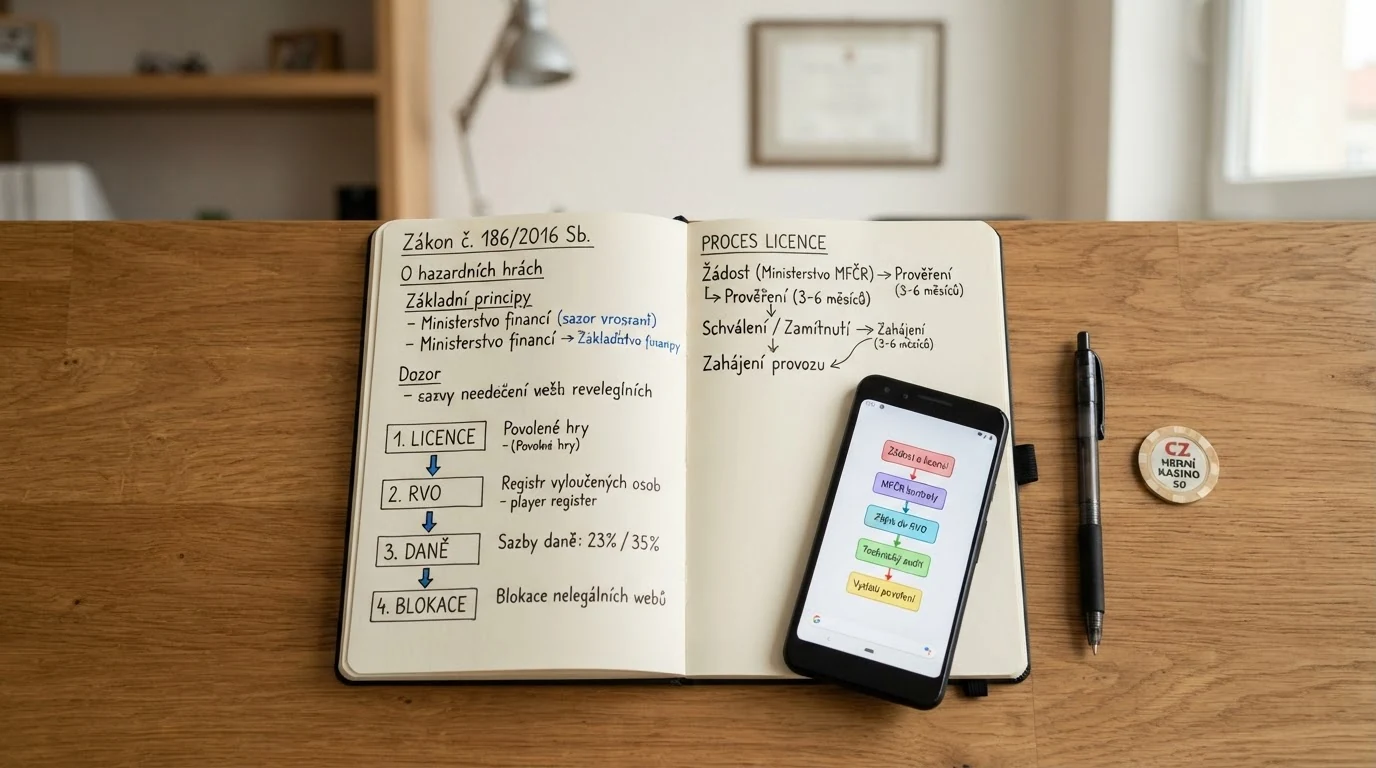 Zákon č. 186/2016 Sb.
O hazardních hrách
Základní principy
- Ministerstvo financí (sazor vrosrant)
- Ministerstvo financí →
Dozor
- sazvy needečení reveleglních
1. LICENCE
Povolené hry
- (Povolné hry)
2. RVO
Registr vyloučených osob
- player register
3. DANĚ
Sazby daně: 23% / 35%
4. BLOKACE
Blokace nelegálních webů
PROCES LICENCE
Žádost (Ministerstvo MFČR) → Prověření
(3-6 měsíců)
↳ Prověření (3-6 měsíců)
Schválení / Zamítnutí → Zahájení
(3-6 měsíců)
Zahájení provozu
MFČR
Technický audit
CZ
KASINO